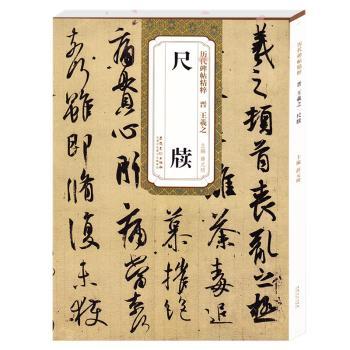 历代碑帖精粹 晋 王羲之
尺牍
主编 薛元明
羲之頓首喪亂之極
離荼毒追
慕摧絕
痛貫心肝痛當奈
何雖即脩復未獲
历代碑帖精粹 晋 王羲之 尺牍
主编 薛元明